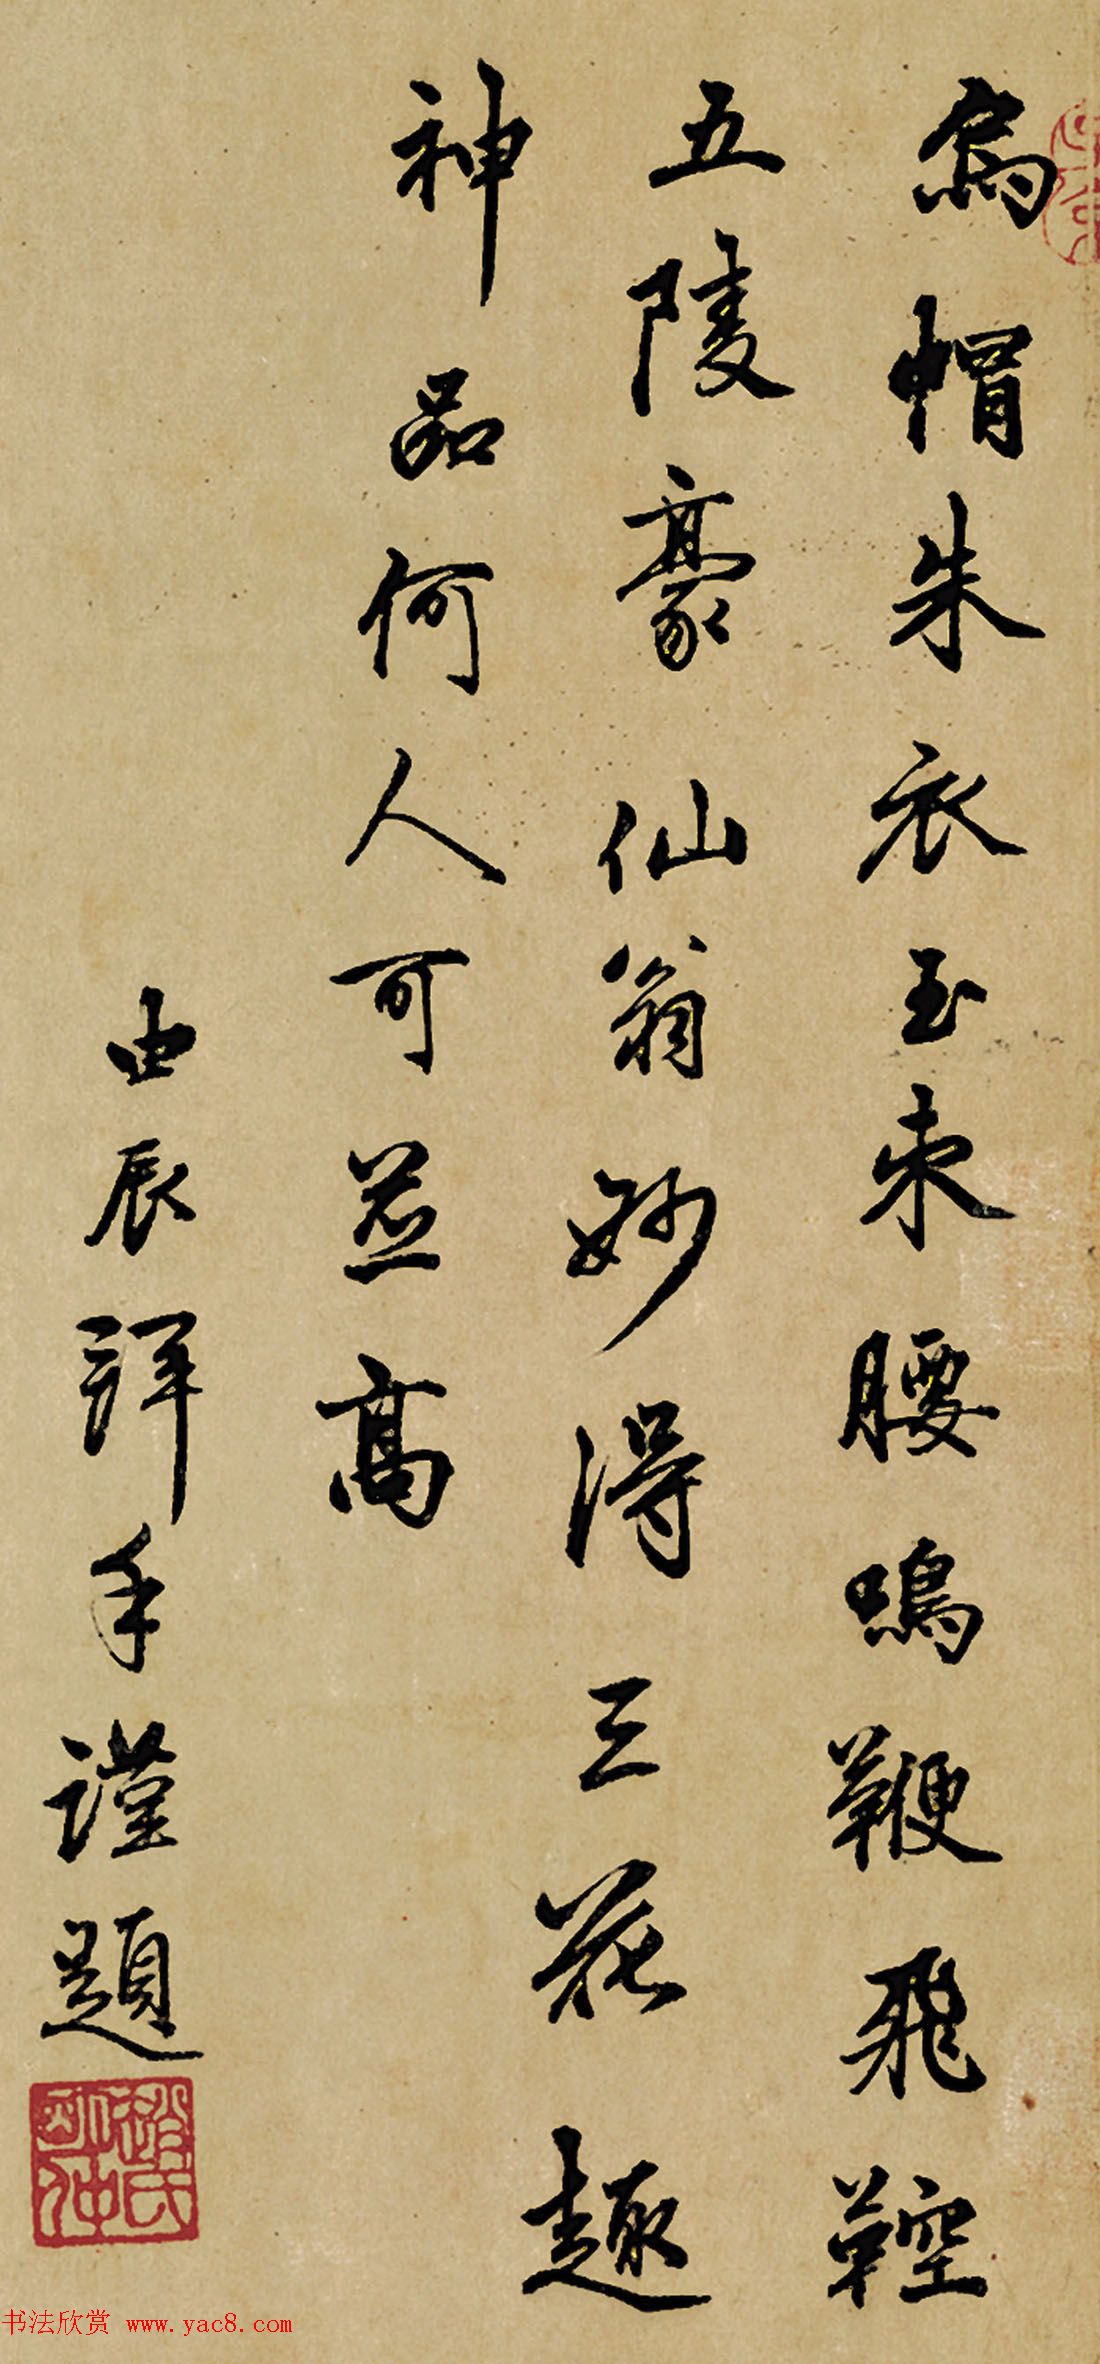 烏帽朱衣玉束腰鳴鞭飛鞚
五陵豪仙翁妙得三花趣
神品何人可並高
由辰拜手謹題
趙氏仲明
书法欣赏 www.yac8.com